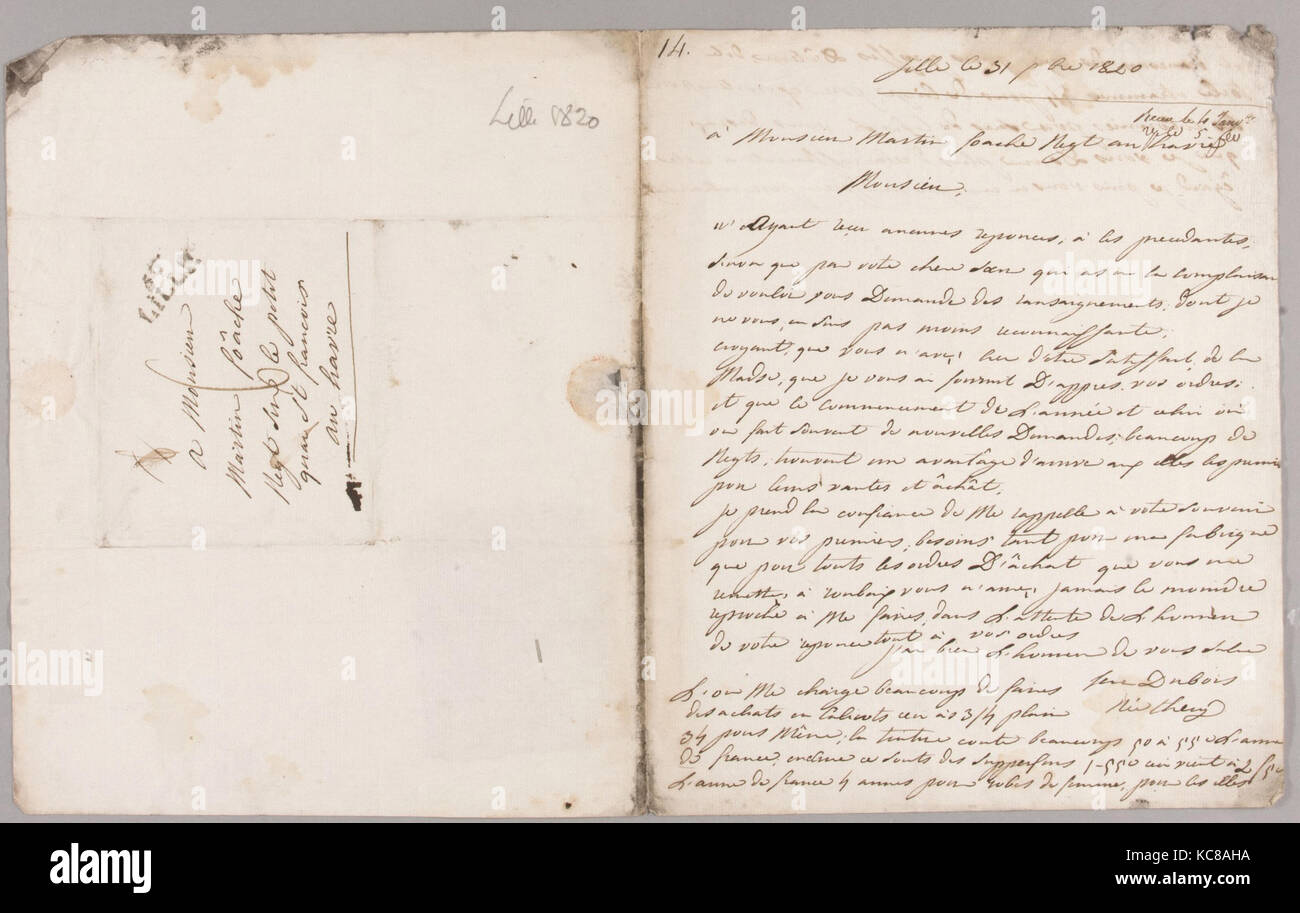 Lille 1820
LILLE
a Monsieur
Martin foâche
Negt sur le petit
quai St francois
au havre
14.
Lille le 31 1820
Recu le 4 Janv.
a Monsieur Martin foache Negt au havre
Monsieur,
N'Ayant reçu aucunes reponces, à les precedantes,
que par vote cher qui as eu la complaisan
de vouloir vous Demande des ransaignements, dont je
ne vous en suis pas moins reconnaissante;
croyant, que vous n'avez lieu d'être satisfait, de la
Madse, que je vous ai fournit D'appres vos ordres;
et que le commencement de L'année et celui où
on fait souvent de nouvelles Demandes; beaucoups de
Negts, trouvent un avantâge d'arrive aux illes les premie
pour leurs vantes et âchât.
je prend la confiance de Me rappelle à vote souvenir
pour vos premiers, besoins tant pour ma fabrique
que pour touts les ordres D'âchat que vous me
remettez à roubaix vous n'avez jamais le moindre
reproche à Me faires, dans L'attente de L'honneur
de vote reponce tout à vos ordres
j'ai bien L'honneur de vous salue
Dubois
Née
L'on Me charge beaucoup de faires
des achats en Calicots 3/4 plain
34 pous Même; la tinture coute beaucoups 50 à 55 L'aune
de france, ce sonts des supperfins 1-55 vient à 2
L'aune de france 4 aunes pour robes de femme, pour les illes
alamy
alamy
Image ID: KC8AHA
www.alamy.com